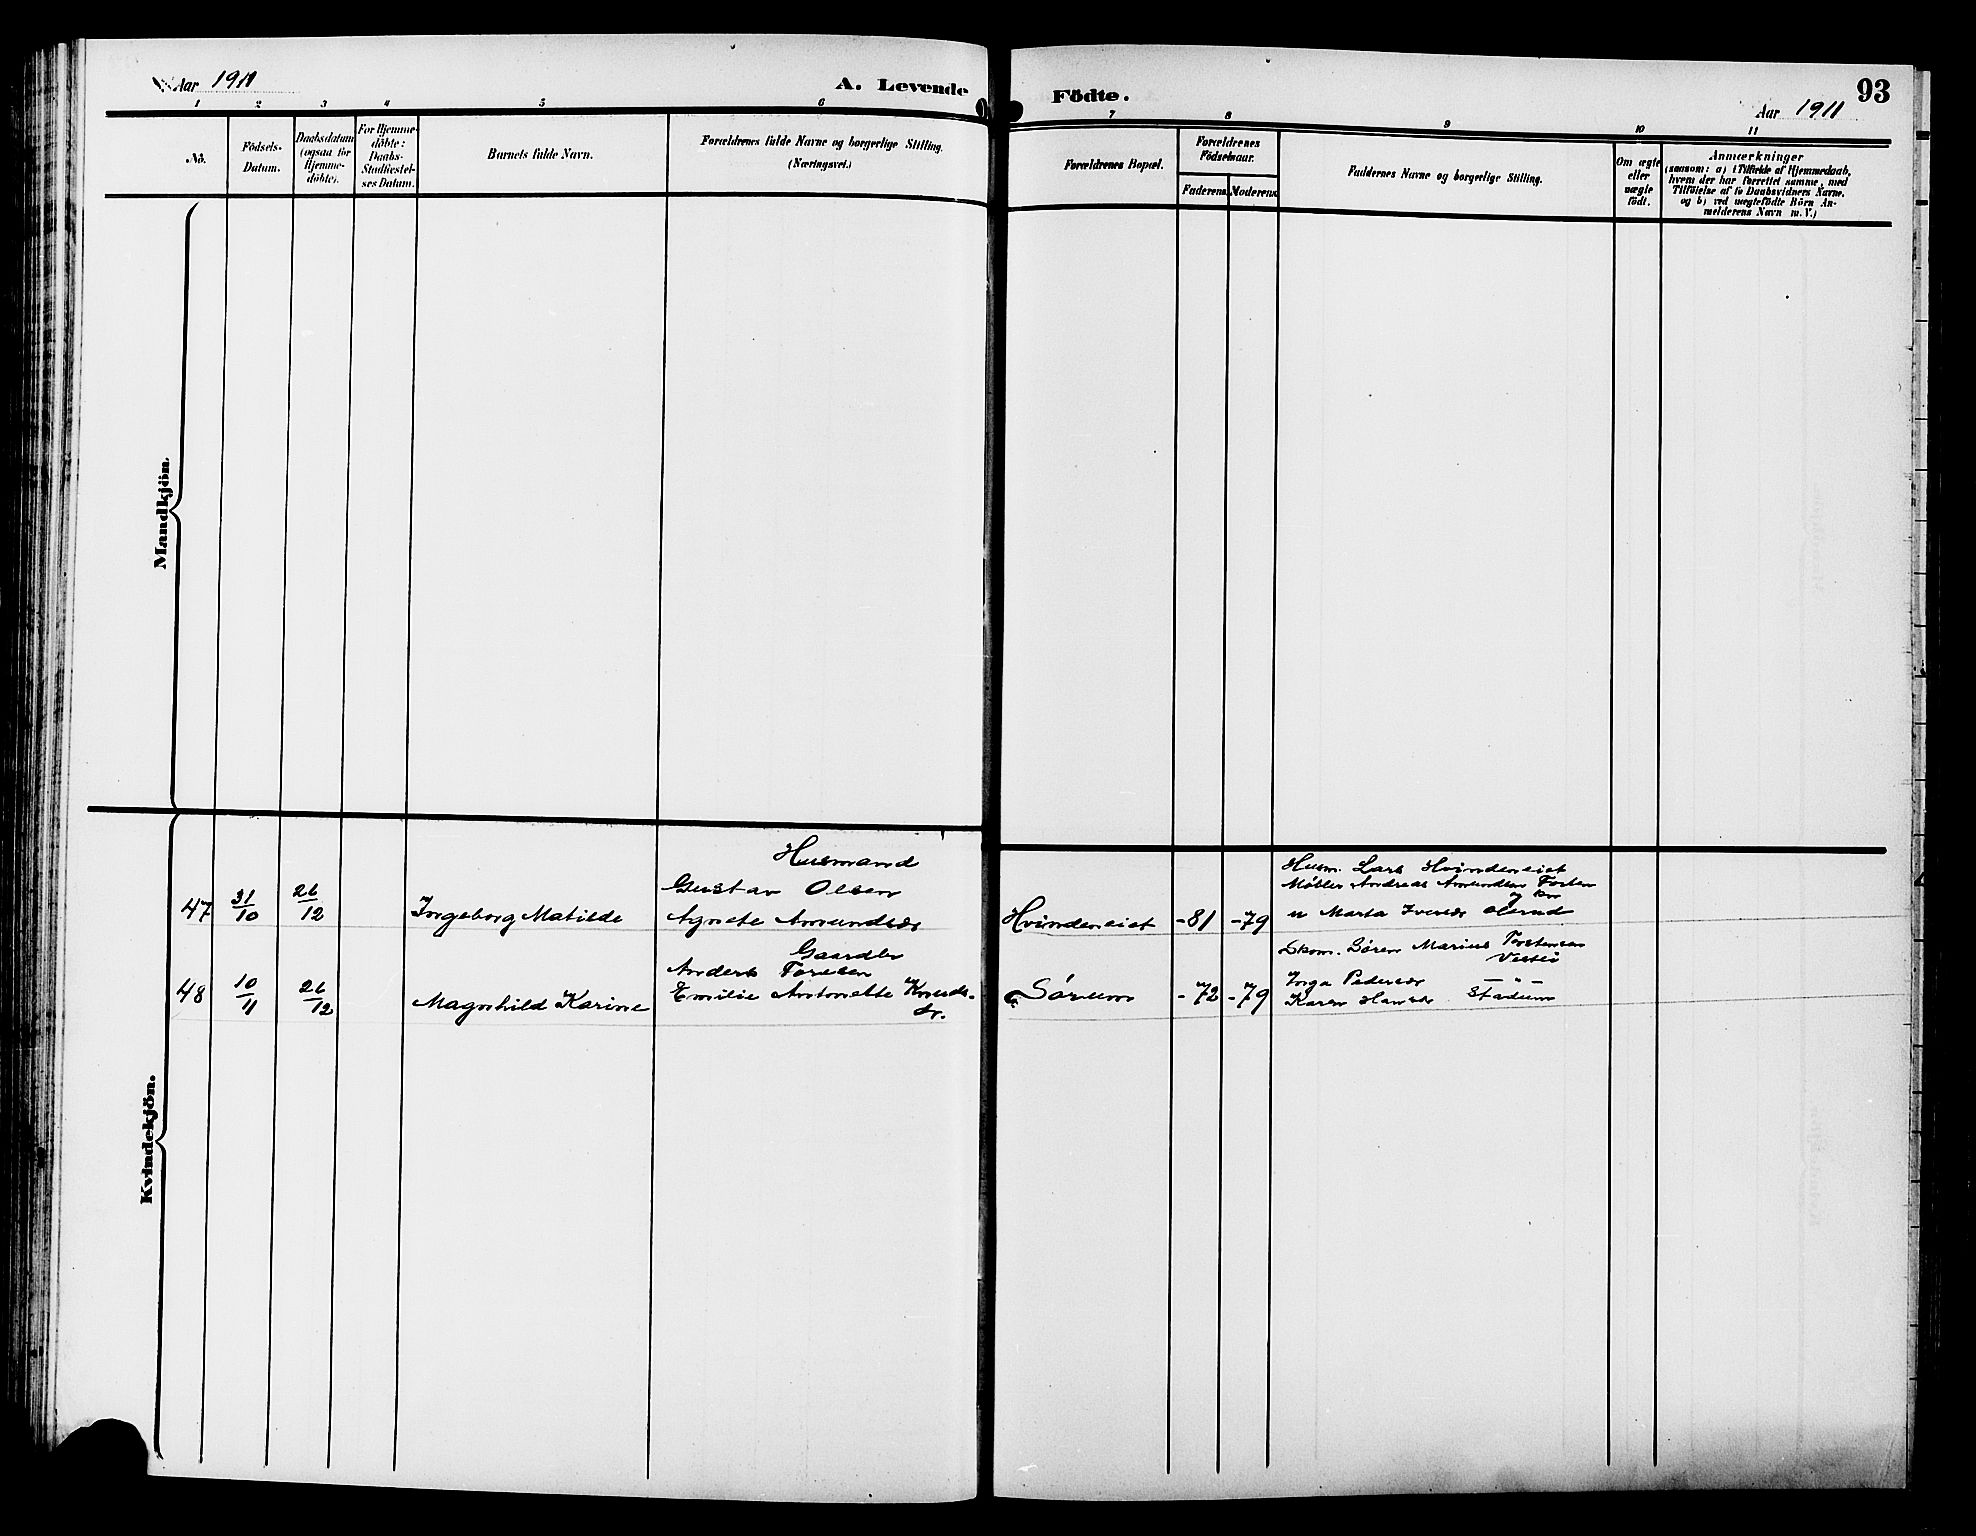 Aar 1911
A. Levende
Födte.
93
Aar 1911
1 2 3 4 5 6 7 8 9 10 11
No.
Födsels-
Datum.
Daabsdatum
(ogsaa for
Hjemme-
döbte).
For Hjemme-
döbte:
Daabs-
Stadfæstel-
ses Datum.
Barnets fulde Navn.
Forældrenes fulde Navne og borgerlige Stilling.
(Næringsvei.)
Forældrenes Bopæl.
Forældrenes
Födselsaar.
Faderens.
Moderens.
Faddernes Navne og borgerlige Stilling.
Om ægte
eller
uægte
födt.
Anmærkninger
(saasom: a) i Tilfælde af Hjemmedaab,
hvem der har forrettet samme, med
Tilföielse af to Daabsvidners Navne.
og b) ved uægtefödte Börn An-
melderens Navn m. V.)
Mandkjön.
Kvindekjön.
47
31/10
26/12
Ingeborg Matilde
Husmand
Gustav Olsen
Agnete Amundsdr
Hvindeneiet
-81
-79
Husm. Lars Hvindeneiet
Møller Andreas Amundsen
og
Marta Iversdr
48
10/11
26/12
Magnhild Karine
Gaardbr
Anders Toresen
Emilie Antonette Knuds-
dr.
Sørum
-72
-79
Skom. Søren Marius Torstensen
Inga Pedersdr — " —
Karen Hansdr Stadum